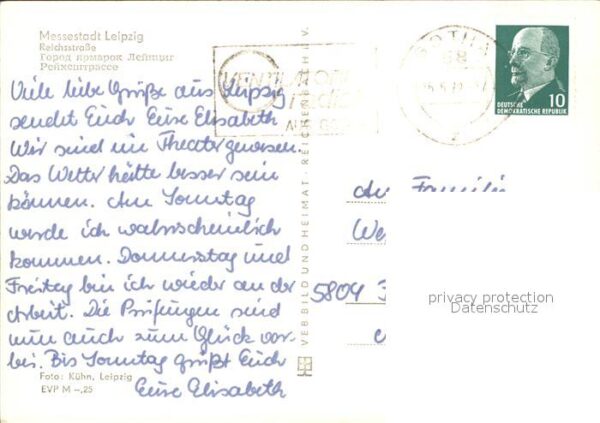 Messestadt Leipzig
Reichsstraße
Город ярмарок Лейпциг
Рейхсштрассе
Viele liebe Grüße aus Leipzig
sendet Euch Eure Elisabeth
Wir sind im Theater gewesen.
Das Wetter hätte besser sein
können. Am Sonntag
werde ich wahrscheinlich
kommen. Donnerstag und
Freitag bin ich wieder an der
Arbeit. Die Prüfungen sind
nun auch zum Glück vor-
bei. Bis Sonntag grüßt Euch
Eure Elisabeth
Foto: Kühn, Leipzig
EVP M -,25
VEB BILD UND HEIMAT · REICHENBACH I. V.
GOTHA
DEUTSCHE
DEMOKRATISCHE REPUBLIK
10
An Familie
5804
privacy protection
Datenschutz